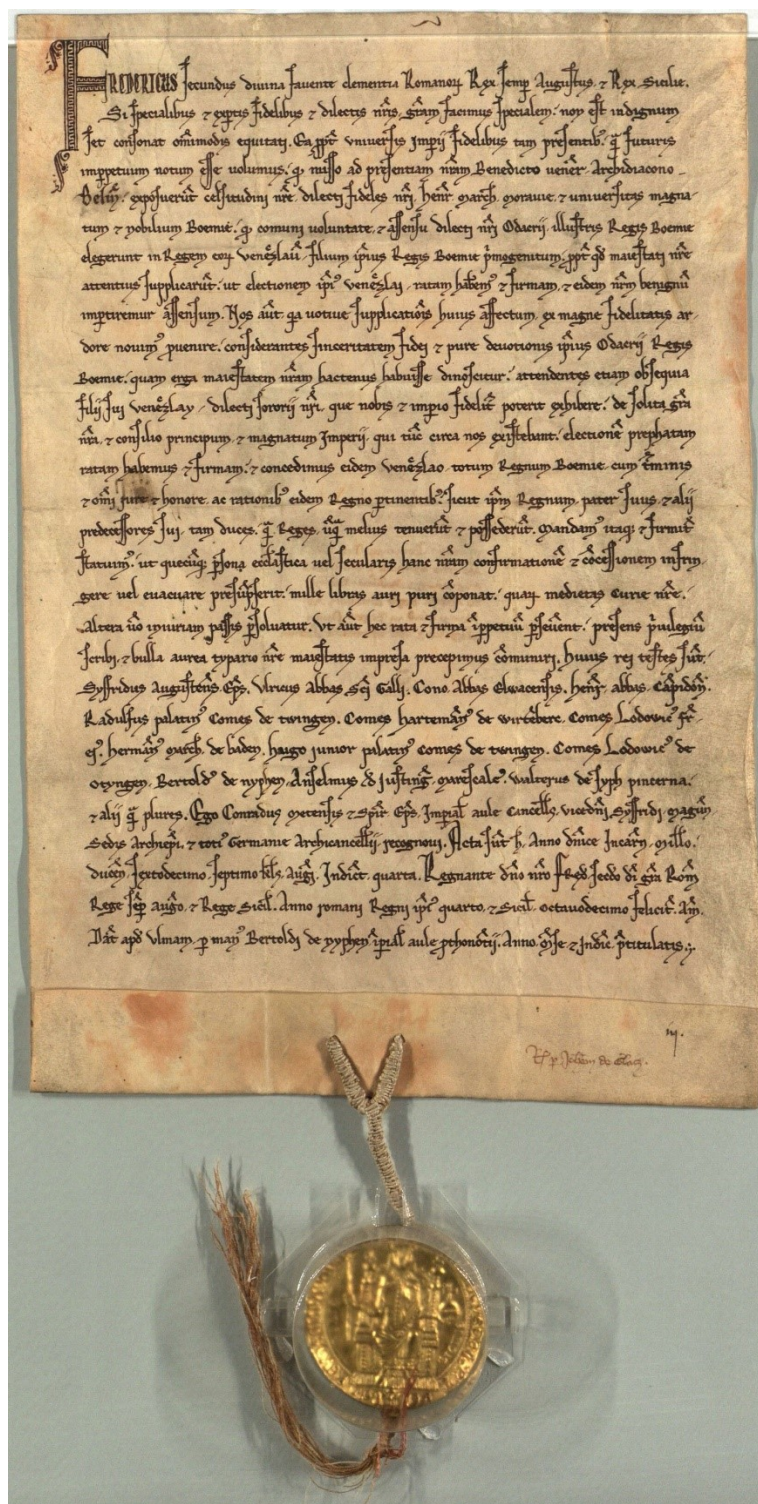 FRIDERICUS secundus divina favente clementia Romanoꝝ Rex semp Augustus. ⁊ Rex Sicilie.
Si specialibus ⁊ exptis fidelibus ⁊ dilectis nr̄is, gr̄am facimus specialem: non est indignum
set consonat om̄imodis equitati. Ea pp̄t universis Imperii fidelibus tam presentib: q̄ futuris
imperpetuum notum esse volumus: ꝙ misso ad presentiam nr̄am Benedicto vener̄ Archidiacono
Belin̄: exposuerūt celsitudini nr̄e dilecti fideles nr̄i, henr̄ march̄ moravie, ⁊ universitas magna-
tum ⁊ nobilium Boemie: ꝙ comuni voluntate, ⁊ assensu dilecti nr̄i Odacrii illustris Regis Boemie
elegerunt in Regem eoꝝ venēzlaū, filium ipsius Regis Boemie p̄mogenitum, pp̄t qd̄ maiestati nr̄e
attentius supplicarūt: ut electionem ip̄i venēzlai, ratam habem̄ ⁊ firmam, ⁊ eidem nr̄m benignū
impertiremur assensum. Nos aūt q̄a votive supplicatiōis huius affectum, ex magne fidelitatis ar-
dore novim̄ p̄uenire: considerantes sinceritatem fidei ⁊ pure devotionis ipsius Odacrii Regis
Boemie: quam erga maiestatem nr̄am hactenus habuisse dinoscitur: attendentes etiam obsequia
filii sui venēzlay, dilecti sororii nr̄i, que nobis ⁊ imperio fidelit̄ poterit exhibere: de solita gr̄a
nr̄a, ⁊ consilio principum, ⁊ magnatum Imperii, qui tūc circa nos existebant: electionē prephatam
ratam habemus ⁊ firmam: ⁊ concedimus eidem venēzlao totum Regnum Boemie cum t̄minis
⁊ om̄i iure ⁊ honore ac rationib eidem Regno ꝑtinentib: sicut ip̄m Regnum, pater suus, ⁊ alii
predecessores sui, tam duces, q̄ Reges, ūq̄ melius tenuerūt ⁊ possederūt. Mandam̄ itaq; ⁊ firmit̄
statuim̄: ut quecūq; ꝑsona ecclāstica vel secularis hanc nr̄am confirmationē ⁊ cōcessionem infrin-
gere vel evacuare presūpserit: mille libras auri puri cōponat: quaꝝ medietas Curie nr̄e:
Altera ūo iniuriam passis ꝑsolvatur. Ut aūt hec rata ⁊ firma īppetuū ꝑseveent: presens p̄uilegiū
scribi, ⁊ bulla aurea typario nr̄e maiestatis impressa precepimus cōmuniri. Huius rei testes sūt:
Syffridus Augustens̄ Ep̄s. Ulricus Abbas Sc̄i Galli. Cono Abbas Elwacensis, henr̄ abbas Cāpidōn̄.
Radulfus palatin̄ Comes de twingen. Comes hartemān̄ de wirtēbere. Comes Lodowic̄ fr̄
ei. hermān̄ march̄ de baden. haugo iunior palatin̄ Comes de twingen. Comes Lodowic̄ de
otyngen. Bertold̄ de nyphen. Anselmus de iustinḡ marescalc̄. walterus de syph pincerna:
⁊ alii q̄ plures. Ego Conradus metensis ⁊ Spir̄ Ep̄s. Imperial̄ aule Cancell̄s, vice dn̄i Syffridi Magūn̄
Sedis Archiep̄i, ⁊ toti Germanie Archicancell̄ii recognovi. Acta sūt h̄. Anno dn̄ice Incarn̄ Mill̄o.
ducen̄. sextodecimo, septimo kl̄s augī. Indict̄. quarta. Regnante dn̄o nr̄o Fred̄ sec̄do di gr̄a Rom̄
Rege sēp augō, ⁊ Rege Sicil̄. Anno romani Regni ip̄i quarto, ⁊ Sicil̄ octavodecimo felicit̄. Am̄.
Dat̄ apd̄ Ulmam, ꝑ man̄ Bertoldi de nyphen īpial̄ aule ꝑthonōtii. Anno m̄se ⁊ Indic̄ p̄titulatis.